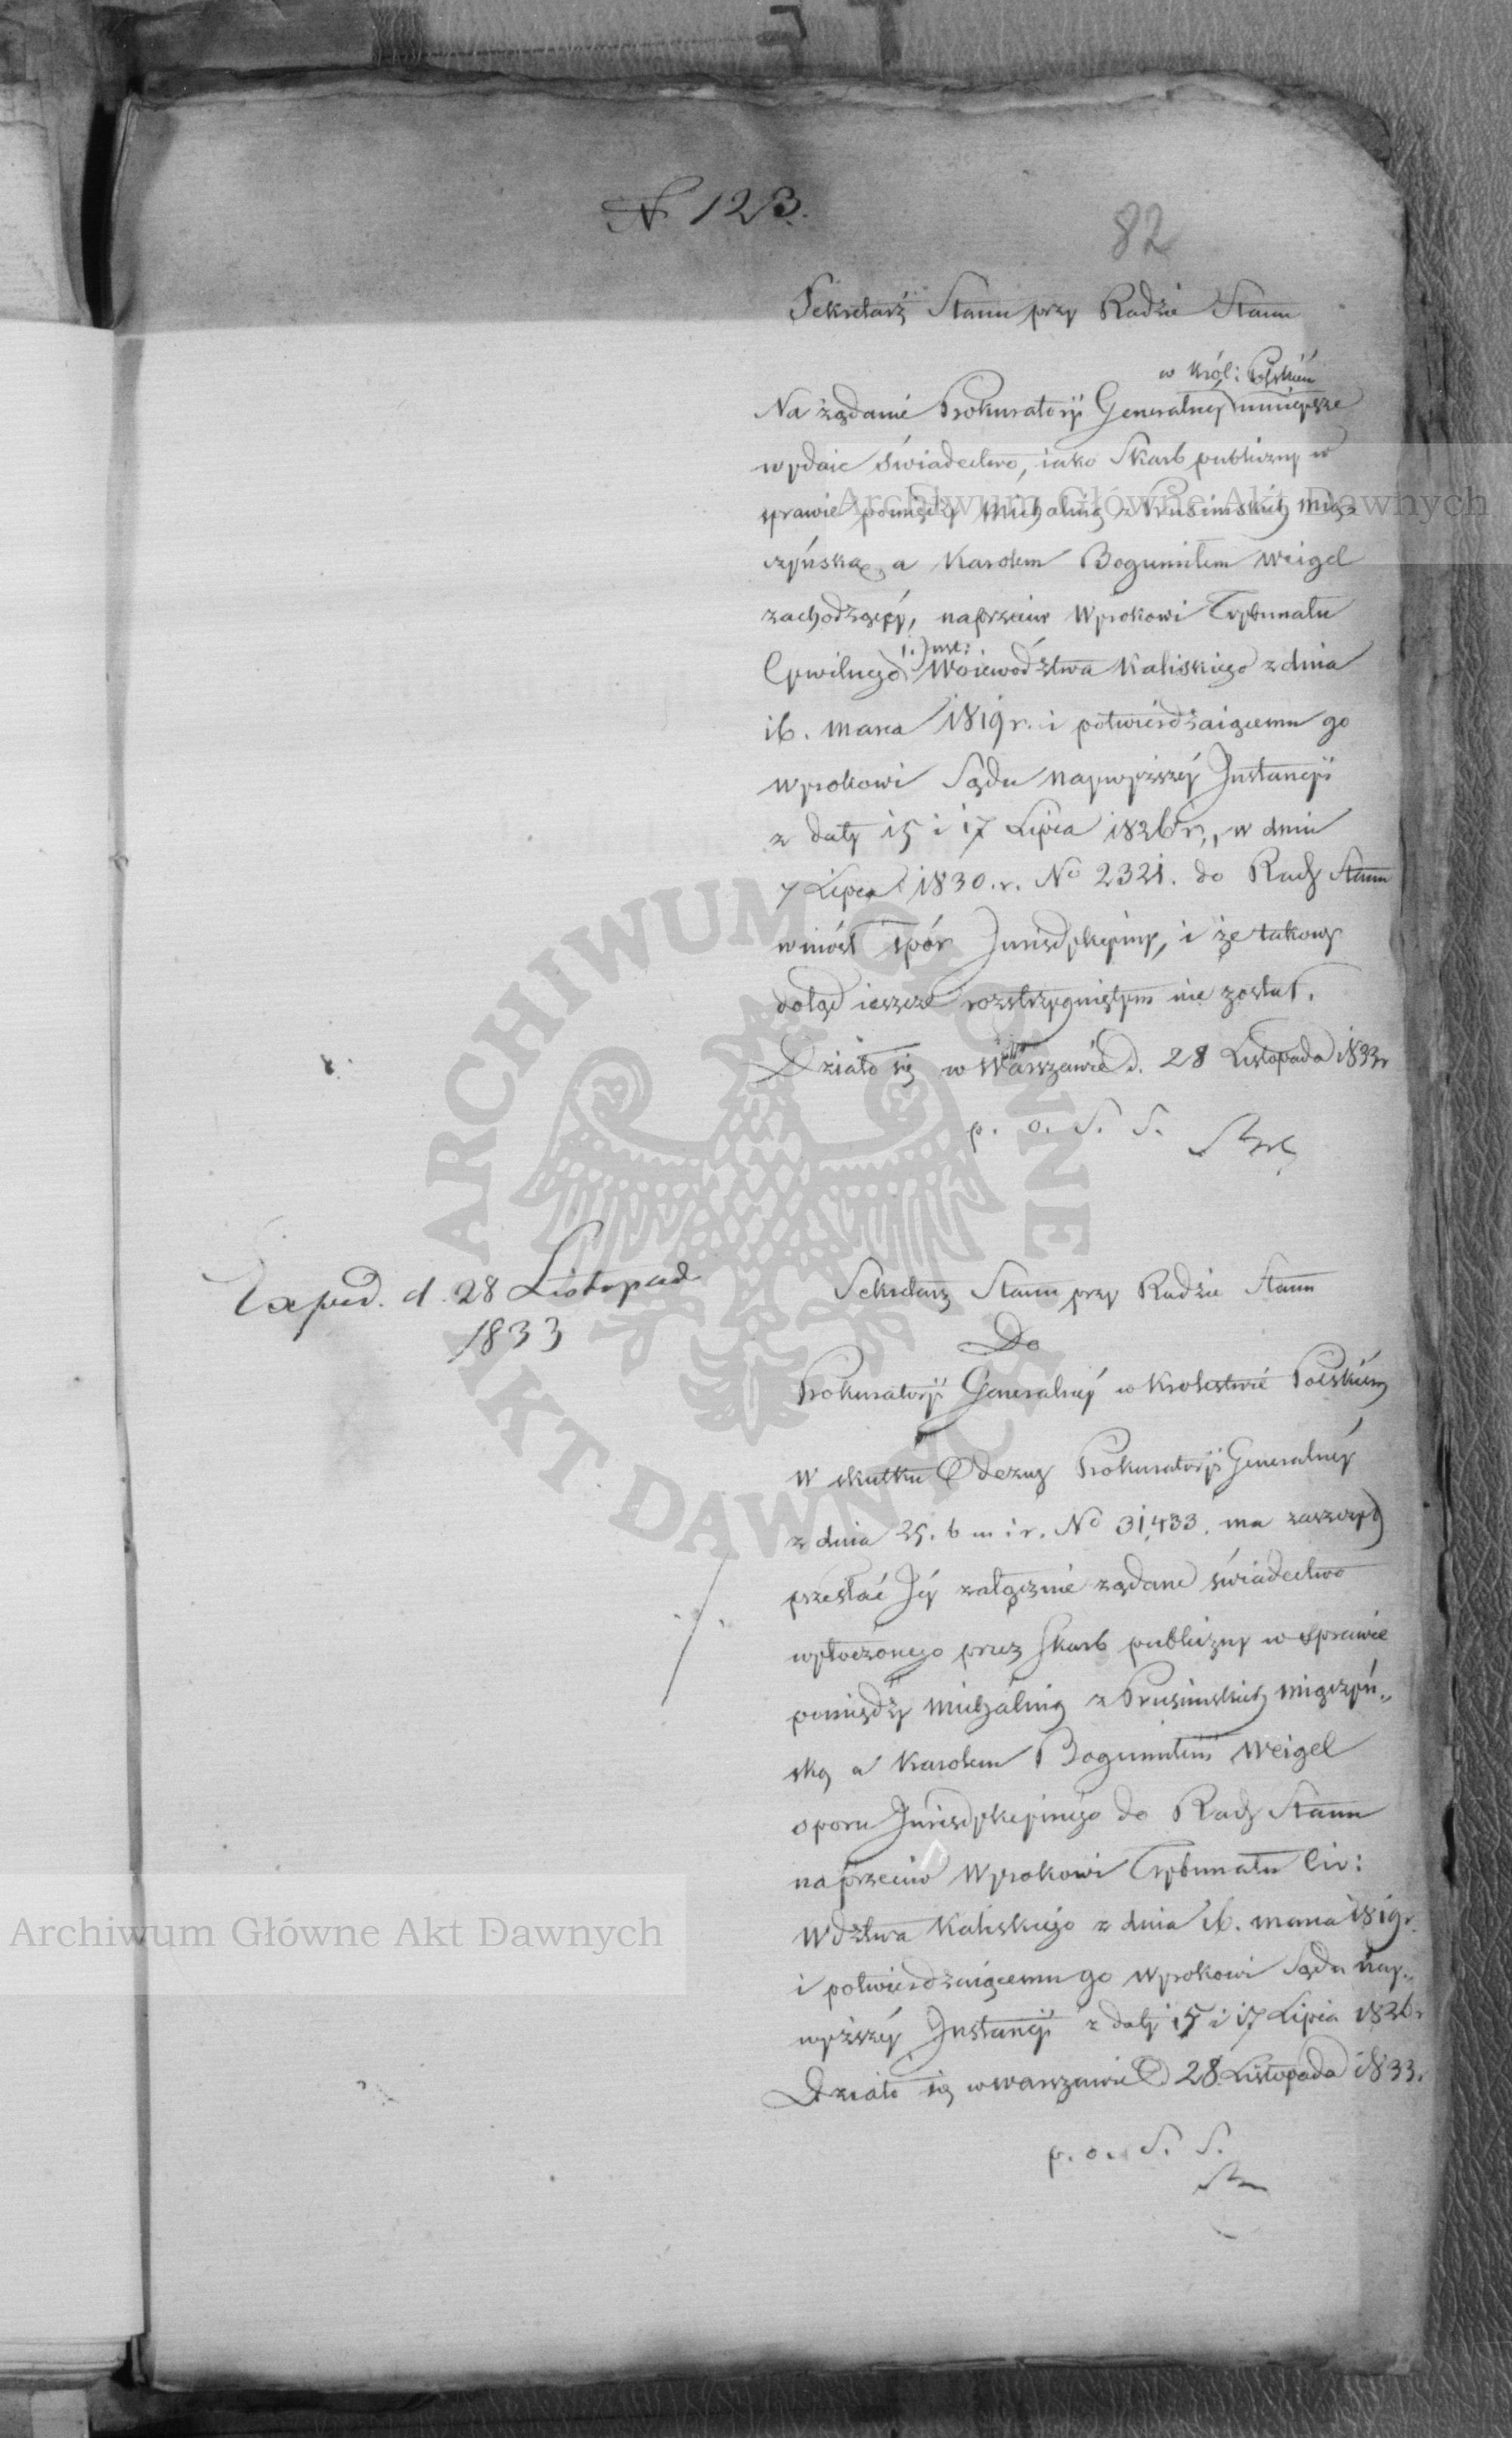 N 123.
82
Sekretarz Stanu przy Radzie Stanu
w Król: Polskiém
Na żądanie Prokuratoryi Generalnéy ninieysze
wydaie świadectwo, iako Skarb publiczny w
sprawie pomiędzy Michaliną z Prusimskich Mią-
czyńską, a Karolem Bogumiłem Weigel
zachodzącéy, naprzeciw Wyrokowi Trybunału
I. Inst:
Cywilnego Woiewództwa Kaliskiego z dnia
16. Marca 1819 r. i potwierdzaiącemu go
Wyrokowi Sądu Naywyższéy Instancyi
z daty 15 i 17 Lipca 1826 r., w dniu
7 Lipca 1830. r. No 2321. do Rady Stanu
wniósł spór Jurisdykcyiny, i że takowy
dotąd ieszcze rozstrzygniętym nie został.
Działo się w Warszawie d. 28 Listopada 1833 r
p. o. S. S.
Exped. d. 28 Listopad
1833
Sekretarz Stanu przy Radzie Stanu
Do
Prokuratoryi Generalnéy w Krolestwie Polskiém
W skutku Odezwy Prokuratoryi Generalnéy
z dnia 25. b m i r. No 31,433. ma zaszczyt
przesłać Jéy załącznie żądane świadectwo
wytoczonego przez Skarb publiczny w sprawie
pomiędzy Michaliną z Prusimskich Miączyń„
ską a Karolem Bogumiłem Weigel
sporu Jurisdykcyinego do Rady Stanu
naprzeciw Wyrokowi Trybunału Civ:
Wdztwa Kaliskiego z dnia 16. Marca 1819 r.
i potwierdzaiącemu go Wyrokowi Sądu Nay„
wyższéy Instancyi z daty 15 i 17 Lipca 1826 r
Działo się w Warszawie d 28 Listopada 1833.
p. o. S. S.
Archiwum Główne Akt Dawnych
Archiwum Główne Akt Dawnych
ARCHIWUM GŁÓWNE
AKT DAWNYCH